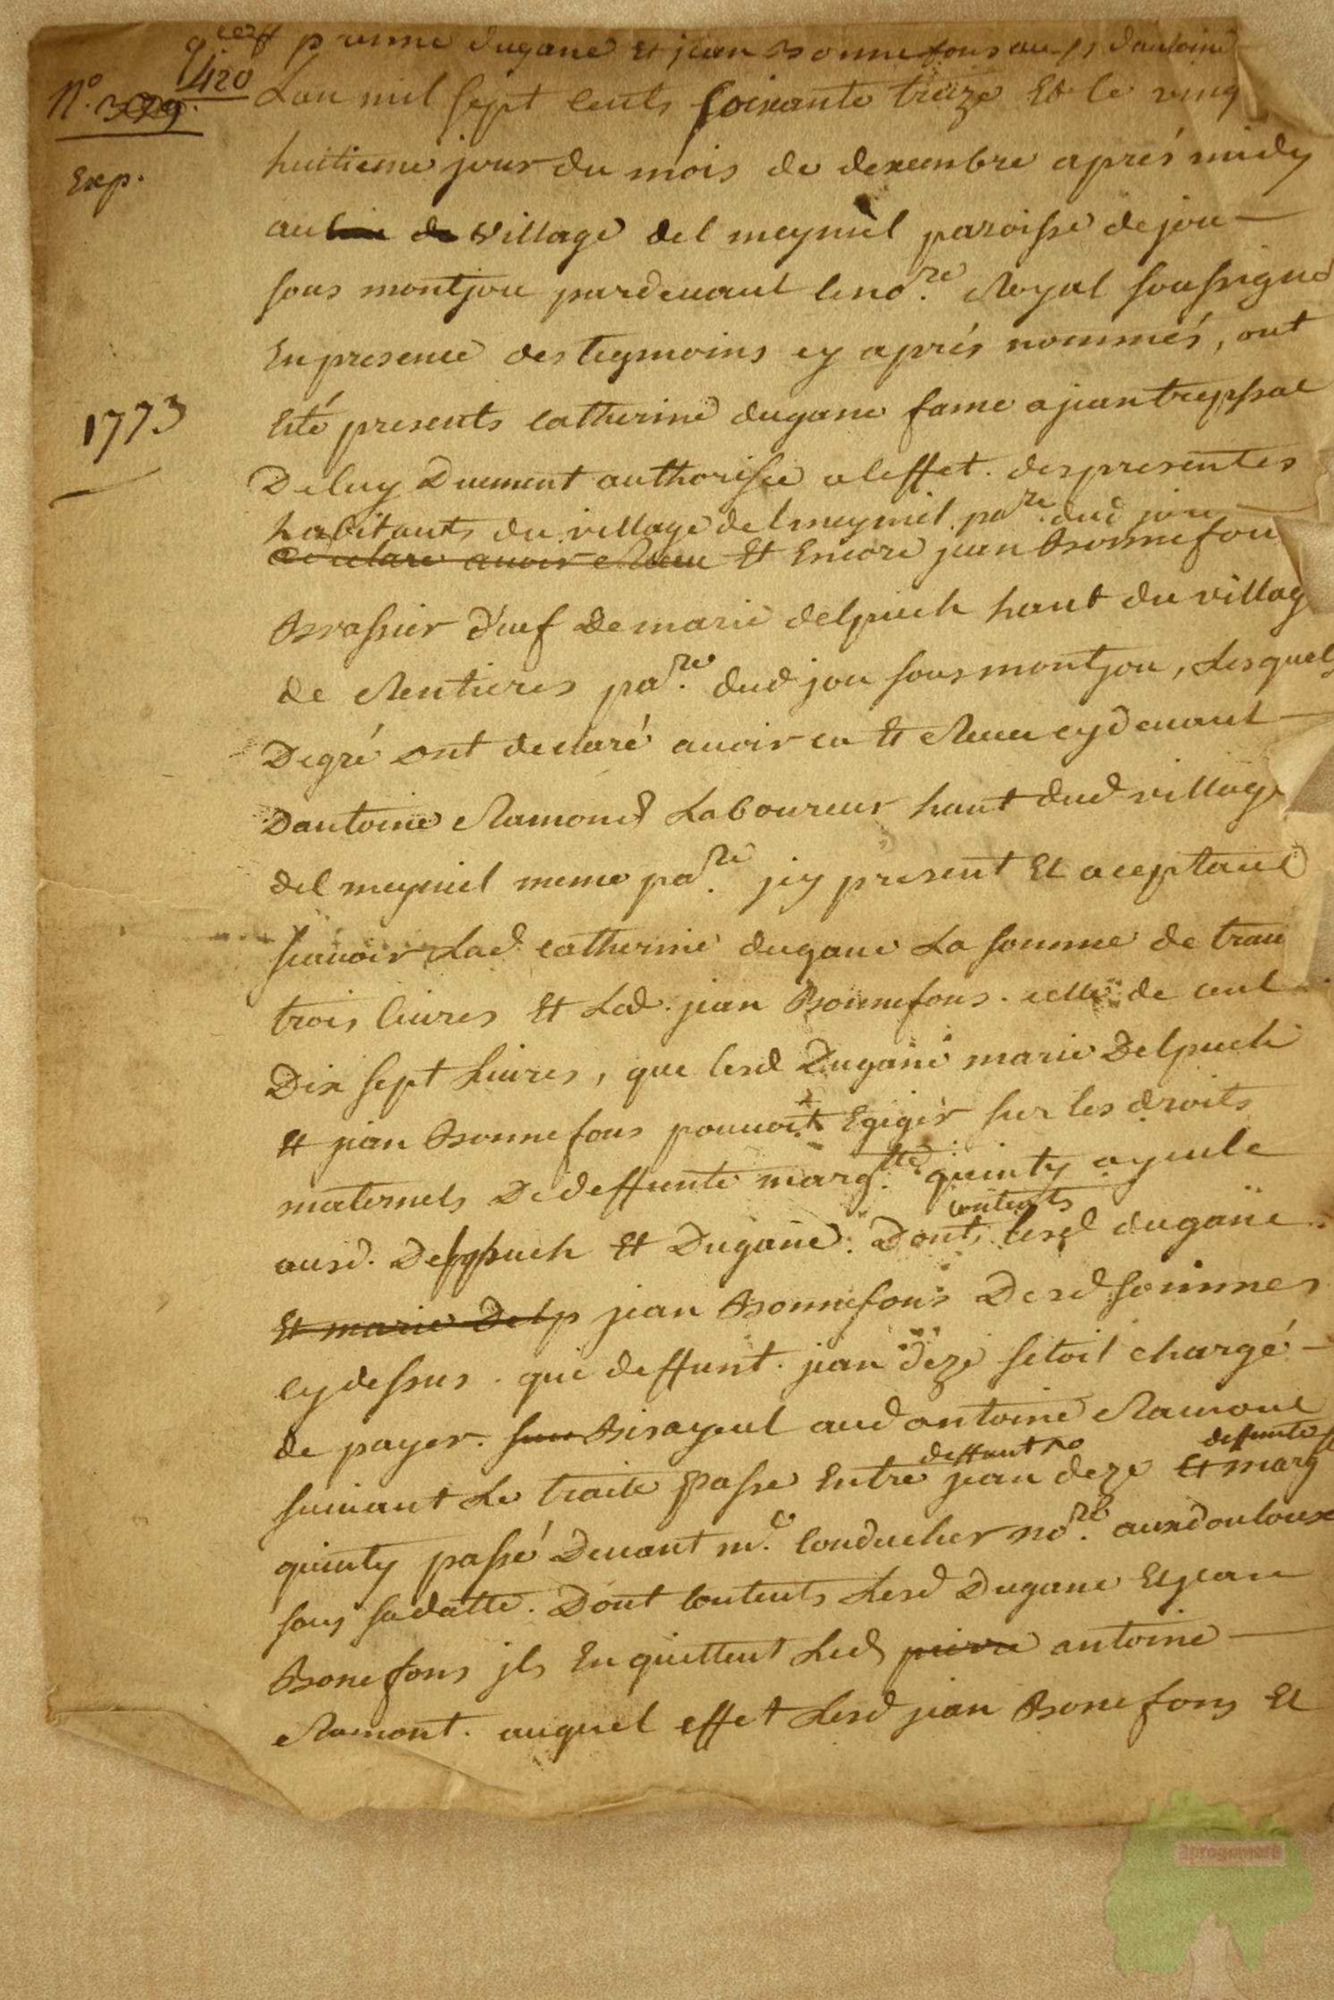 prime dugane Et jean Bonnefons au sr dantoine
420
N.o 399. Lan mil sept cents soixante treize Et le ving
Exp. huitieme jour du mois de decembre aprés midy
au lieu de village del meyniel paroisse de jou
sous montjou pardevant le no.re Royal soussigné
En presence des teymoins cy aprés nommés, ont
1773
Eté presents Catherine dugane fame a jean treyssac
De luy Duement authorisée a leffet. des presentes
habitants du village del meyniel pa.re dud jou
declare avoir Receu Et Encore jean Bonnefou
Brassier d'uef De marie delpuech hant du village
de Rentieres pa.re dud jou sous montjou, Lesquels
De gré ont declaré avoir eu Et Receu cy devant
Dantoine Ramond Laboureur hant dud village
del meyniel meme pa.re jcy present Et aceptant
scavoir Lad. Catherine dugane La somme de tran
trois livres Et Led. jean Bonnefons. celle de cent
Dix sept Livres, que lesd Dugane marie Delpuech
Et jean Bonnefons pouvoit Egiger sur les droits
maternels De deffunte marg.tte quinty ayeule
ausd. Delpuech Et Dugane. Dont contents lesd dugane
Et marie Delp jean Bonnefons Desd sommes
cy dessus. que deffunt. jean deze setoit chargé
de payer. Bisayeul aud antoine Ramont
suivant Le traité passe Entre deffunt jean deze deffunte Et marg
quinty passé Devant m.e Conducher no.re auxdoulouse
sous sa datte. Dont Contents Lesd Dugane Et jean
Bonefons jls En quittent Led pierre antoine
Ramont. auquel effet Lesd jean Bonefons Et